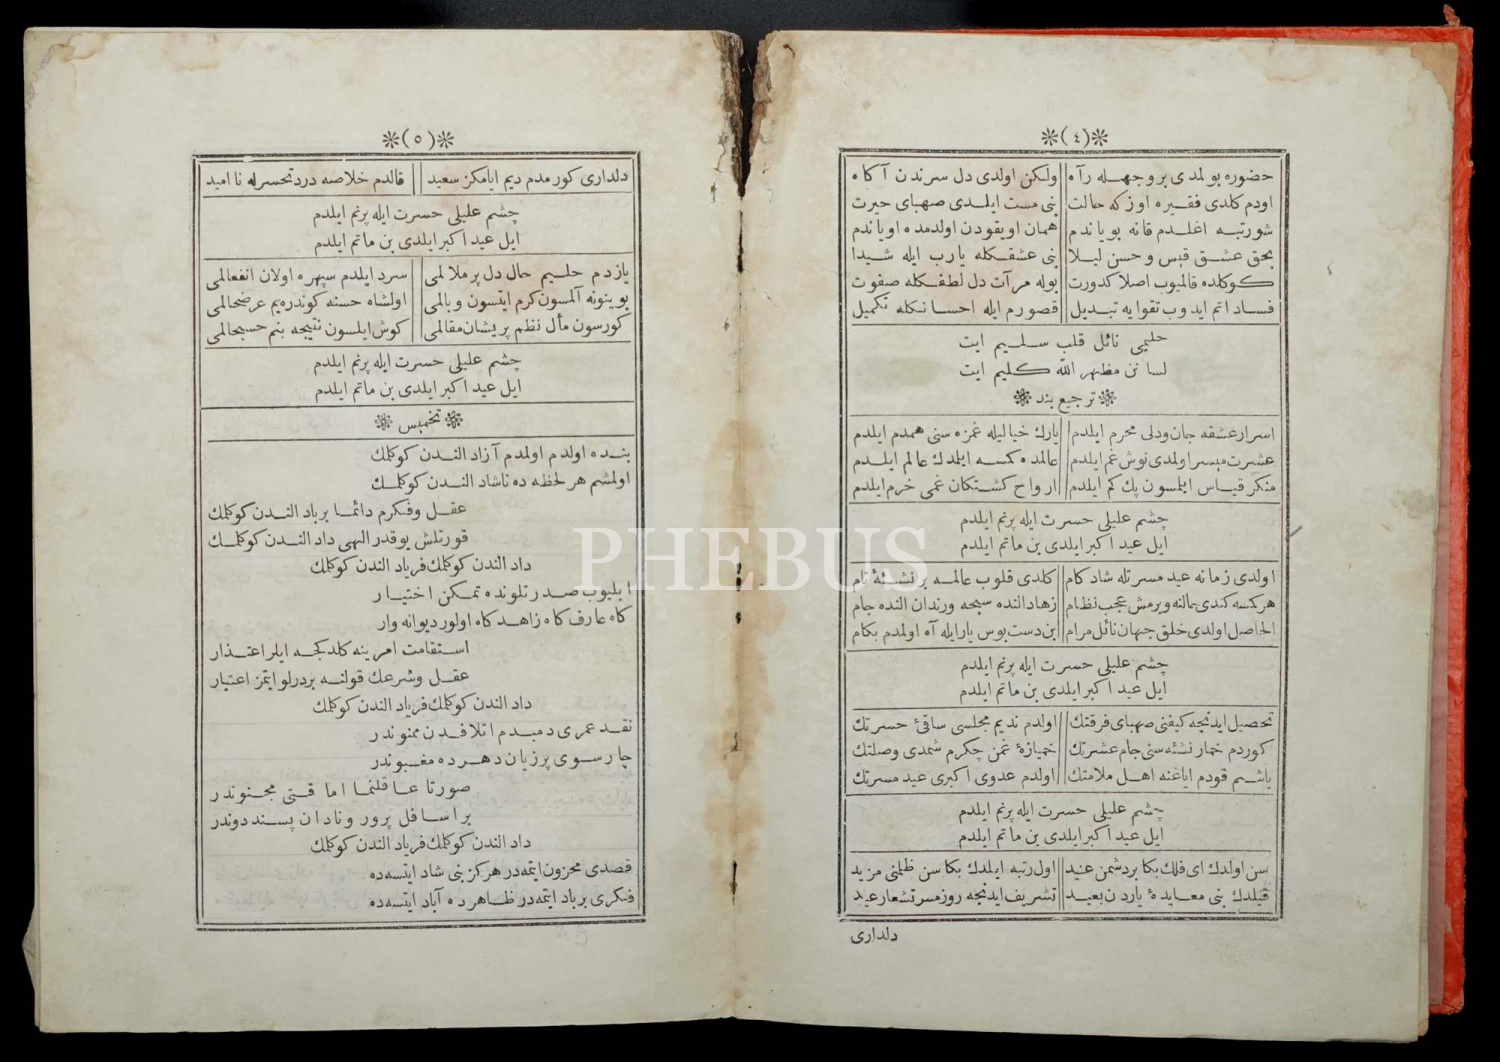 ❊(٤)❊
حضوره بولمدی بر وجهله راه ولکن اولدی دل سرندن آکاه
اودم کلدی فقیره اوزکه حالت بنی مست ایلدی صهبای حیرت
شورتبه اغلدم قانه بویاندم همان اویقودن اولدمده اویاندم
بحق عشق قیس و حسن لیلا بنی عشقکله یارب ایله شیدا
کوکلده قالمیوب اصلا کدورت بوله مرآت دل لطفکله صفوت
فساد اتم ایدوب تقوایه تبدیل قصورم ایله احسانکله تکمیل
حلیمی نائل قلب سلیم ایت
لسانن مظهر الله کلیم ایت
❊ترجیع بند❊
اسرار عشقه جان ودلی محرم ایلدم یارك خیالیله غمزه سنی همدم ایلدم
عشرت میسر اولدی نوش غم ایلدم عالمده کمسه ایلمدك عالم ایلدم
منکر قیاس ایلمسون پك کم ایلدم ارواح کشتکان غمی خرم ایلدم
چشم علیلی حسرت ایله پرنم ایلدم
ایل عید اکبر ایلدی بن ماتم ایلدم
اولدی زمانه عید مسرتله شادکام کلدی قلوب عالمه بر نشئهٔ تام
هرکسه کندی حالنه ویرمش عجب نظام زهاد النده سبحه ورندان النده جام
الحاصل اولدی خلق جهان نائل مرام بن دست بوس یار ایله آه اولمدم بکام
چشم علیلی حسرت ایله پرنم ایلدم
ایل عید اکبر ایلدی بن ماتم ایلدم
تحصیل ایدنجه کیفنی صهبای فرقتك اولدم ندیم مجلسی ساقیٔ حسرتك
کوردم خمار نشئه سنی جام عشرتك خمیازهٔ غمن چکرم شمدی وصلتك
باشم قودم ایاغنه اهل ملامتك اولدم عدوی اکبری عید مسرتك
چشم علیلی حسرت ایله پرنم ایلدم
ایل عید اکبر ایلدی بن ماتم ایلدم
سن اولدك ای فلك بکا بر دشمن عنید اول رتبه ایلدك بکا سن ظلمنی مزید
قیلدك بنی معایدهٔ یاردن بعید تشریف ایدنجه روز مسرتشعار عید
دلداری
❊(٥)❊
دلداری کورمدم دیم ایامکز سعید قالدم خلاصه درد تحسرله ناامید
چشم علیلی حسرت ایله پرنم ایلدم
ایل عید اکبر ایلدی بن ماتم ایلدم
یازدم حلیم حال دل پر ملالمی سرد ایلدم سپهره اولان انفعالمی
بوینونه آلمسون کرم ایتسون وبالمی اولشاه حسنه کوندره یم عرضحالمی
کورسون مأل نظم پریشان مقالمی کوش ایلسون نتیجه بنم حسبحالمی
چشم علیلی حسرت ایله پرنم ایلدم
ایل عید اکبر ایلدی بن ماتم ایلدم
❊تخمیس❊
بنده اولدم اولمدم آزاد الندن کوکلك
اولمشم هر لحظه ده ناشاد الندن کوکلك
عقل وفکرم دائما برباد الندن کوکلك
قورتلش یوقدر الهی داد الندن کوکلك
داد الندن کوکلك فریاد الندن کوکلك
ایلیوب صدر تلونده تمکن اختیار
کاه عارف کاه زاهد کاه اولور دیوانه وار
استقامت امرینه کلدکجه ایلر اعتذار
عقل وشرعك قولنه بردرلو ایتمز اعتبار
داد الندن کوکلك فریاد الندن کوکلك
نقد عمری دمبدم اتلافدن ممنوندر
چارسوی پرزیان دهرده مغبوندر
صورتا عاقلنما اما قتی مجنوندر
بر اسافل پرور ونادان پسند دوندر
داد الندن کوکلك فریاد الندن کوکلك
قصدی محزون ایتمه در هرکز بنی شاد ایتسه ده
فکری برباد ایتمه در ظاهرده آباد ایتسه ده
PHEBUS